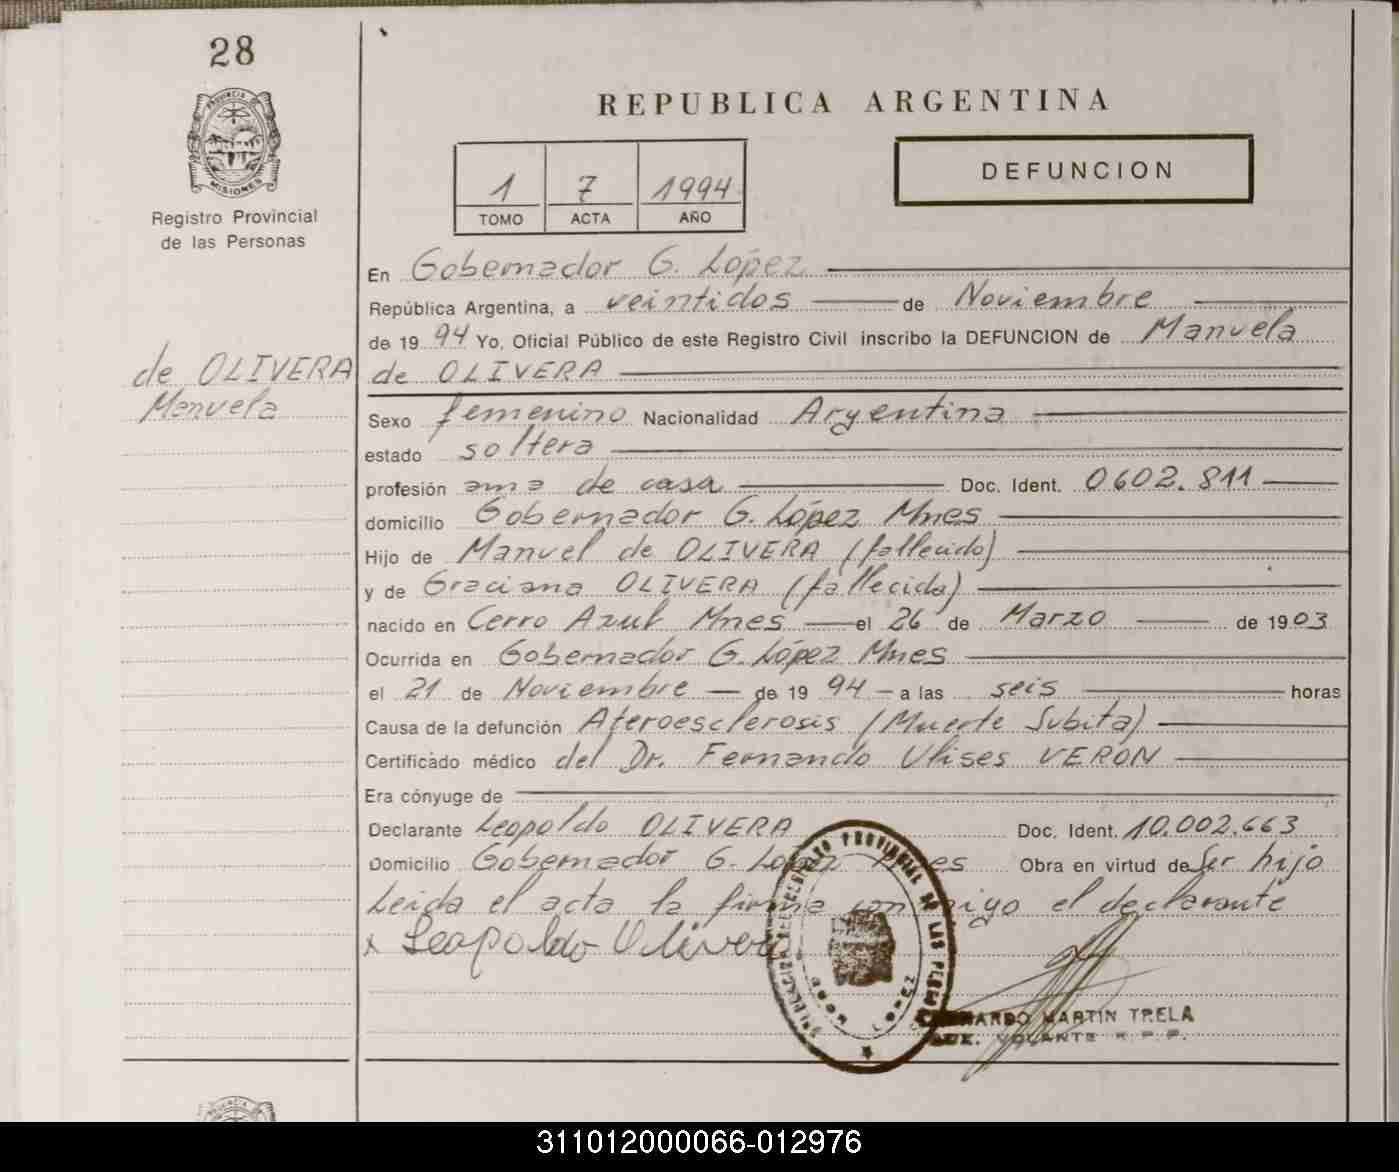 28
PROVINCIA DE
MISIONES
Registro Provincial
de las Personas
de OLIVERA
Manuela
REPUBLICA ARGENTINA
1 7 1994
TOMO ACTA AÑO
DEFUNCION
En Gobernador G. López
República Argentina, a veintidos de Noviembre
de 19 94 Yo, Oficial Público de este Registro Civil inscribo la DEFUNCION de Manuela
de OLIVERA
Sexo femenino Nacionalidad Argentina
estado soltera
profesión ama de casa Doc. Ident. 0602.811
domicilio Gobernador G. López Mnes
Hijo de Manuel de OLIVERA (fallecido)
y de Graciana OLIVERA (fallecida)
nacido en Cerro Azul Mnes el 26 de Marzo de 1903
Ocurrida en Gobernador G. López Mnes
el 21 de Noviembre de 19 94 a las seis horas
Causa de la defunción Ateroesclerosis (Muerte Subita)
Certificado médico del Dr. Fernando Ulises VERON
Era cónyuge de
Declarante Leopoldo OLIVERA Doc. Ident. 10.002.663
Domicilio Gobernador G. Lopez Mnes Obra en virtud de Ser hijo
Leida el acta la firma conmigo el declarante
x Leopoldo Olivera
PROVINCIAL DE LAS
MARTIN TRELA
AUX. VOLANTE R.P.P.
311012000066-012976